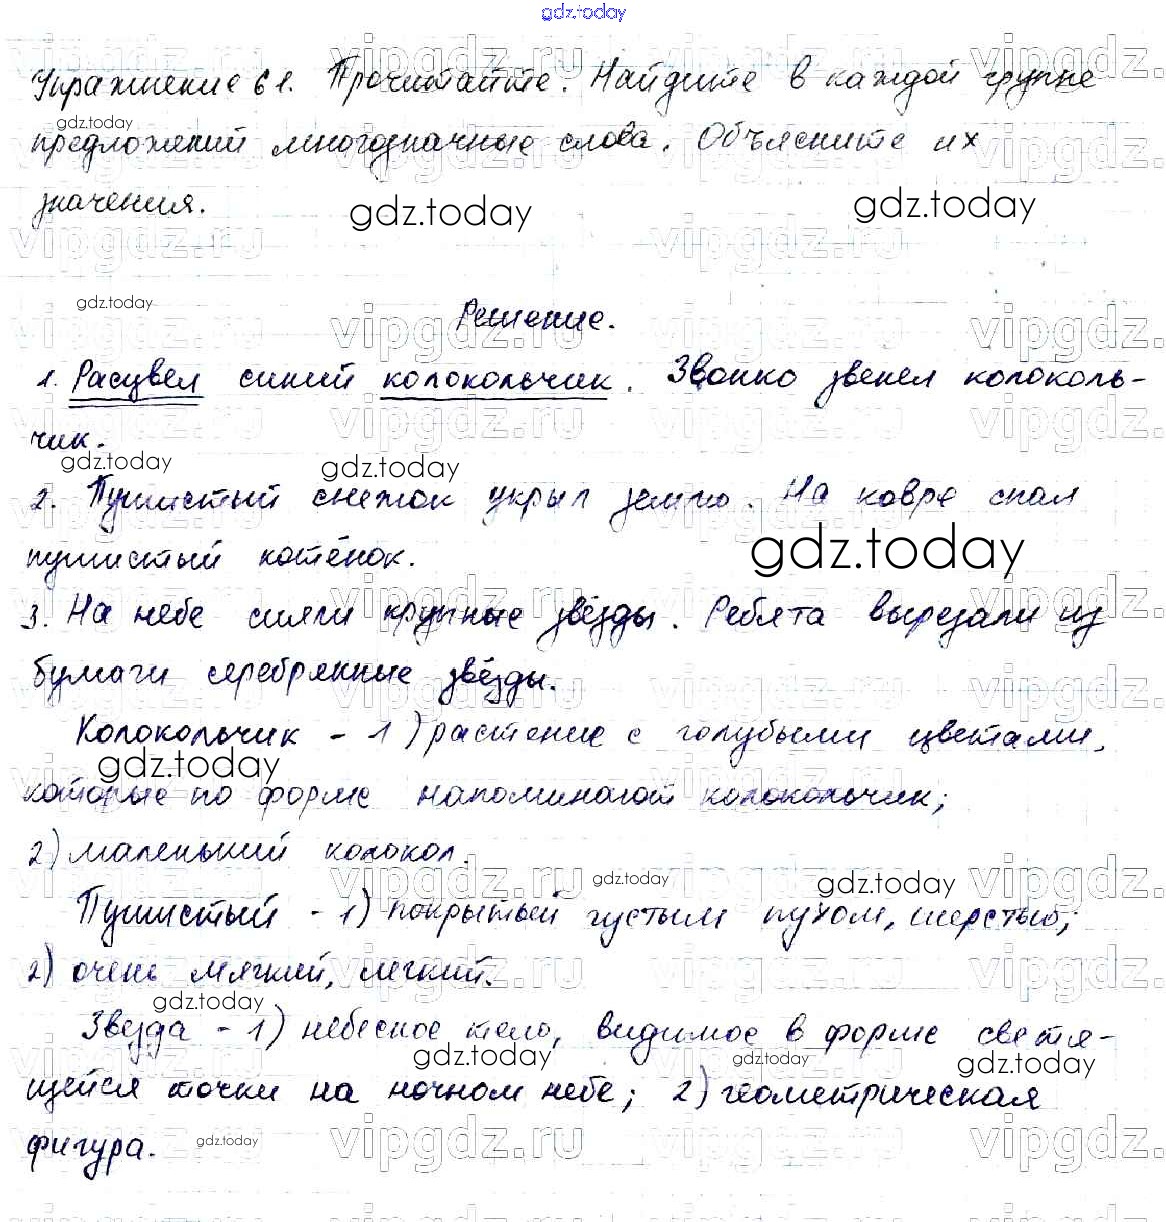 gdz.today
Упражнение 61. Прочитайте. Найдите в каждой группе
gdz.today
предложений многозначные слова. Объясните их
значения.
gdz.today gdz.today
gdz.today
Решение.
1. Расцвел синий колокольчик. Звонко звенел колоколь-
чик.
gdz.today gdz.today
2. Пушистый снежок укрыл землю. На ковре спал
gdz.today
пушистый котёнок.
3. На небе сияли крупные звёзды. Ребята вырезали из
бумаги серебряные звёзды.
Колокольчик - 1) растение с голубыми цветами,
gdz.today
которые по форме напоминают колокольчик;
2) маленький колокол.
gdz.today gdz.today
Пушистый - 1) покрытый густым пухом, шерстью;
2) очень мягкий, легкий.
gdz.today
Звезда - 1) небесное тело, видимое в форме светя-
gdz.today gdz.today gdz.today
щейся точки на ночном небе; 2) геометрическая
фигура.
gdz.today
vipgdz.ru